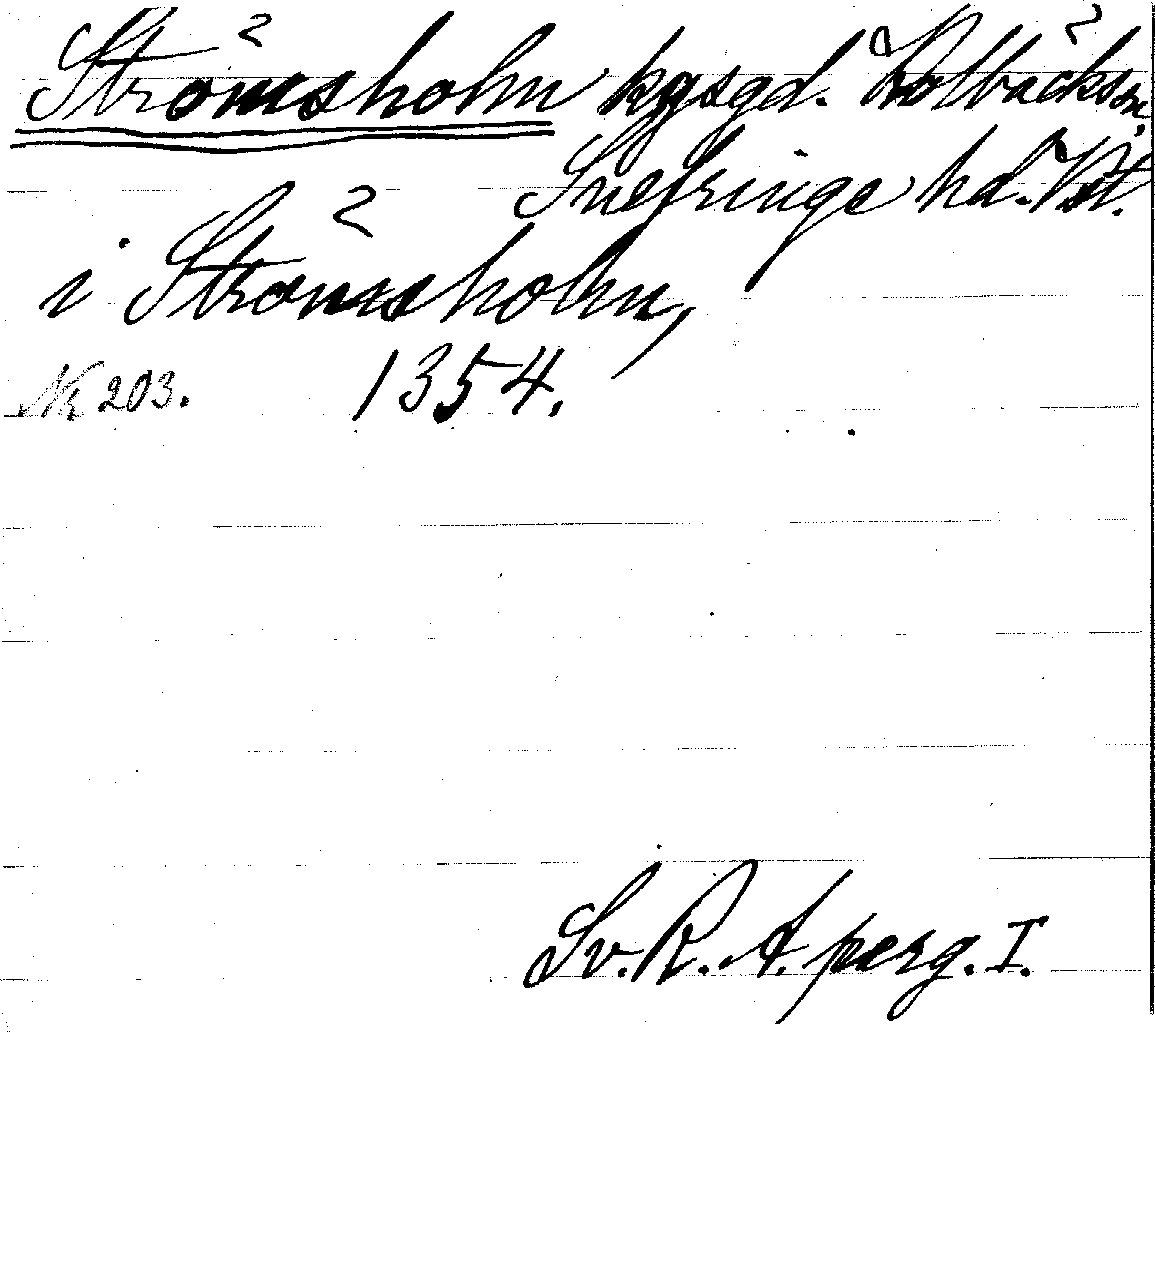 Strömsholm kgsgd. Kolbäcks sn.
Snefringe hd. Vstl.
i Strömsholm,
Nr 203. 1354.
Sv. R. A. perg. I.